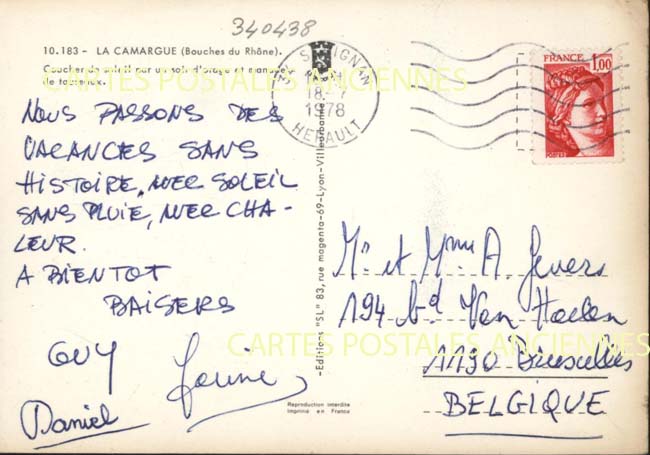 340438
10.183 - LA CAMARGUE (Bouches du Rhône).
Coucher de soleil sur un soir d'orage et manade
de taureaux.
CARTES POSTALES ANCIENNES
NOUS PASSONS DES
VACANCES SANS
HISTOIRE, AVEC SOLEIL
SANS PLUIE, AVEC CHA-
LEUR.
A BIENTOT
BAISERS
GUY
Daniel
SERIGNAN
18.
1978
HERAULT
FRANCE
1,00
-Editions "SL" 83, rue magenta-69-Lyon-Villeurbanne
Mr et Mme A. Jevers
194 bd Van Haelen
CARTES POSTALES ANCIENNES
1190 Bruxelles
BELGIQUE
Reproduction interdite
Imprimé en France